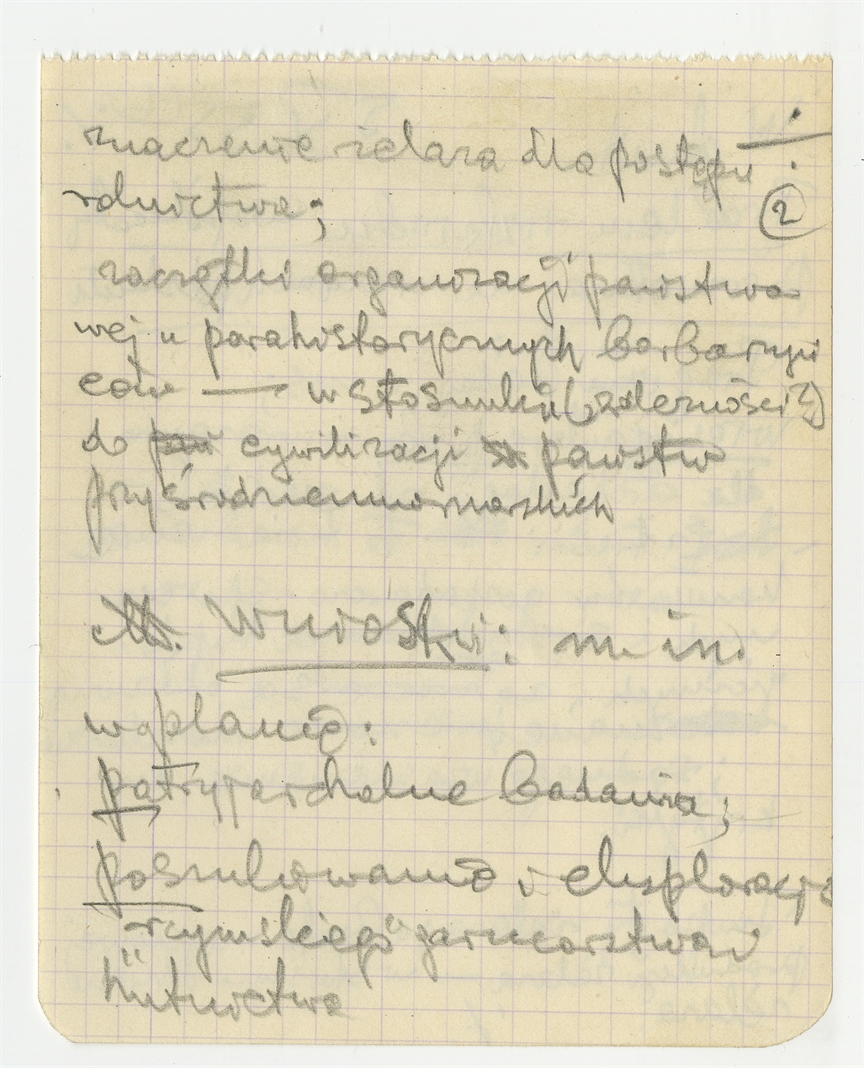 znaczenie żelaza dla postępu
②
rolnictwa;
zaczątki organizacji państwo
wej u parahistorycznych Barbarzyń
ców — w stosunku (zależności?)
do cywilizacji państw
przyśródziemnomorskich
Wnioski: m. in.
w planie:
patryjarchalne badania;
poszukiwania i eksploracja
"rzymskiego" garncarstwa i
hutnictwa